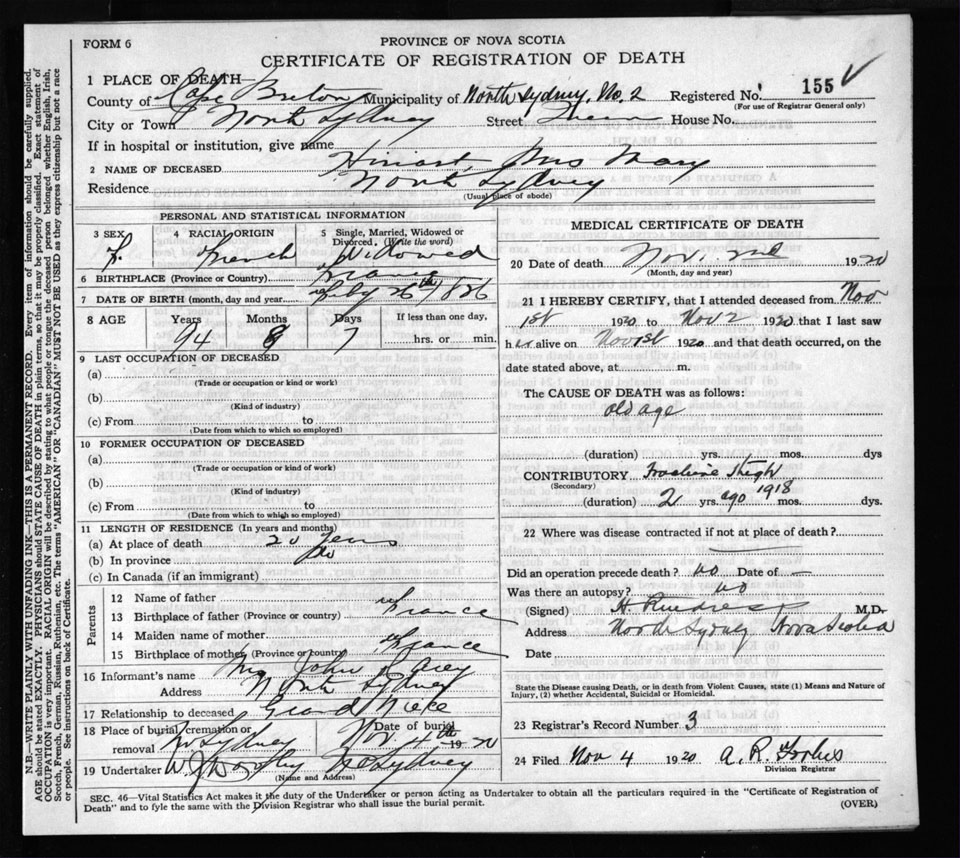 PROVINCE OF NOVA SCOTIA
FORM 6
CERTIFICATE OF REGISTRATION OF DEATH
1 PLACE OF DEATH—
County of Cape Breton Municipality of North Sydney, No. 2 Registered No. 155
(For use of Registrar General only)
City or Town North Sydney Street Queen House No.
If in hospital or institution, give name
2 NAME OF DECEASED Mrs Mary
Residence North Sydney
(Usual place of abode)
PERSONAL AND STATISTICAL INFORMATION
3 SEX 4 RACIAL ORIGIN 5 Single, Married, Widowed or Divorced. (Write the word)
F. French Widowed
6 BIRTHPLACE (Province or Country) France
7 DATE OF BIRTH (month, day and year) Feby 26th 1826
8 AGE Years Months Days If less than one day,
94 8 7 hrs. or min.
9 LAST OCCUPATION OF DECEASED
(a)
(Trade or occupation or kind or work)
(b)
(Kind of industry)
(c) From to
(Date from which to which so employed)
10 FORMER OCCUPATION OF DECEASED
(a)
(Trade or occupation or kind of work)
(b)
(Kind of industry)
(c) From to
(Date from which to which so employed)
11 LENGTH OF RESIDENCE (In years and months)
(a) At place of death 20 years
(b) In province do
(c) In Canada (if an immigrant)
Parents
12 Name of father
13 Birthplace of father (Province or country) France
14 Maiden name of mother
15 Birthplace of mother (Province or country) France
16 Informant's name Mrs John
Address North Sydney
17 Relationship to deceased Grand Niece
18 Place of burial, cremation or removal N Sydney Date of burial Nov 4th 1920
19 Undertaker W. J. N. Sydney
(Name and Address)
MEDICAL CERTIFICATE OF DEATH
20 Date of death Nov. 2nd 1920
(Month, day and year)
21 I HEREBY CERTIFY, that I attended deceased from Nov
1st 1920 to Nov 2 1920 that I last saw
her alive on Nov 1st 1920 and that death occurred, on the
date stated above, at m.
The CAUSE OF DEATH was as follows:
old age
(duration) yrs. mos. dys
CONTRIBUTORY Fracture Thigh
(Secondary)
(duration) 2 yrs. ago 1918 mos. dys.
22 Where was disease contracted if not at place of death?
Did an operation precede death? no Date of —
Was there an autopsy? no
(Signed) M.D.
Address North Sydney Nova Scotia
Date
State the Disease causing Death, or in death from Violent Causes, state (1) Means and Nature of
Injury, (2) whether Accidental, Suicidal or Homicidal.
23 Registrar's Record Number 3
24 Filed Nov 4 1920 A. R. Forbes
Division Registrar
SEC. 46—Vital Statistics Act makes it the duty of the Undertaker or person acting as Undertaker to obtain all the particulars required in the "Certificate of Registration of
Death" and to fyle the same with the Division Registrar who shall issue the burial permit.
(OVER)
N.B.—WRITE PLAINLY WITH UNFADING INK—THIS IS A PERMANENT RECORD. Every item of information should be carefully supplied.
AGE should be stated EXACTLY. PHYSICIANS should STATE CAUSE OF DEATH in plain terms, so that it may be properly classified. Exact statement of
OCCUPATION is very important. RACIAL ORIGIN will be described by stating to what people or tongue the deceased person belonged whether English, Irish,
Scotch, French, German, Russian, Ruthenian, etc. The terms "AMERICAN" or "CANADIAN" MUST NOT BE USED as they express citizenship but not a race
or people. See instructions on back of Certificate.